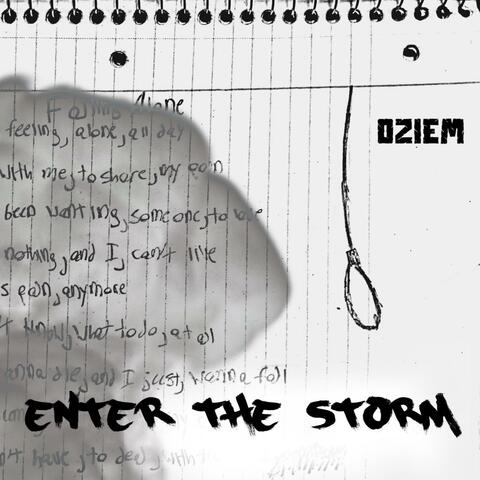 Falling Alone
feeling, alone, all day
with me, to share, my pain
been wanting, someone, to love
nothing, and I, can't live
s pain, anymore
know, what to do, at all
anna die, and I just, wanna fall
't have, to deal, with
OZIEM
ENTER THE STORM